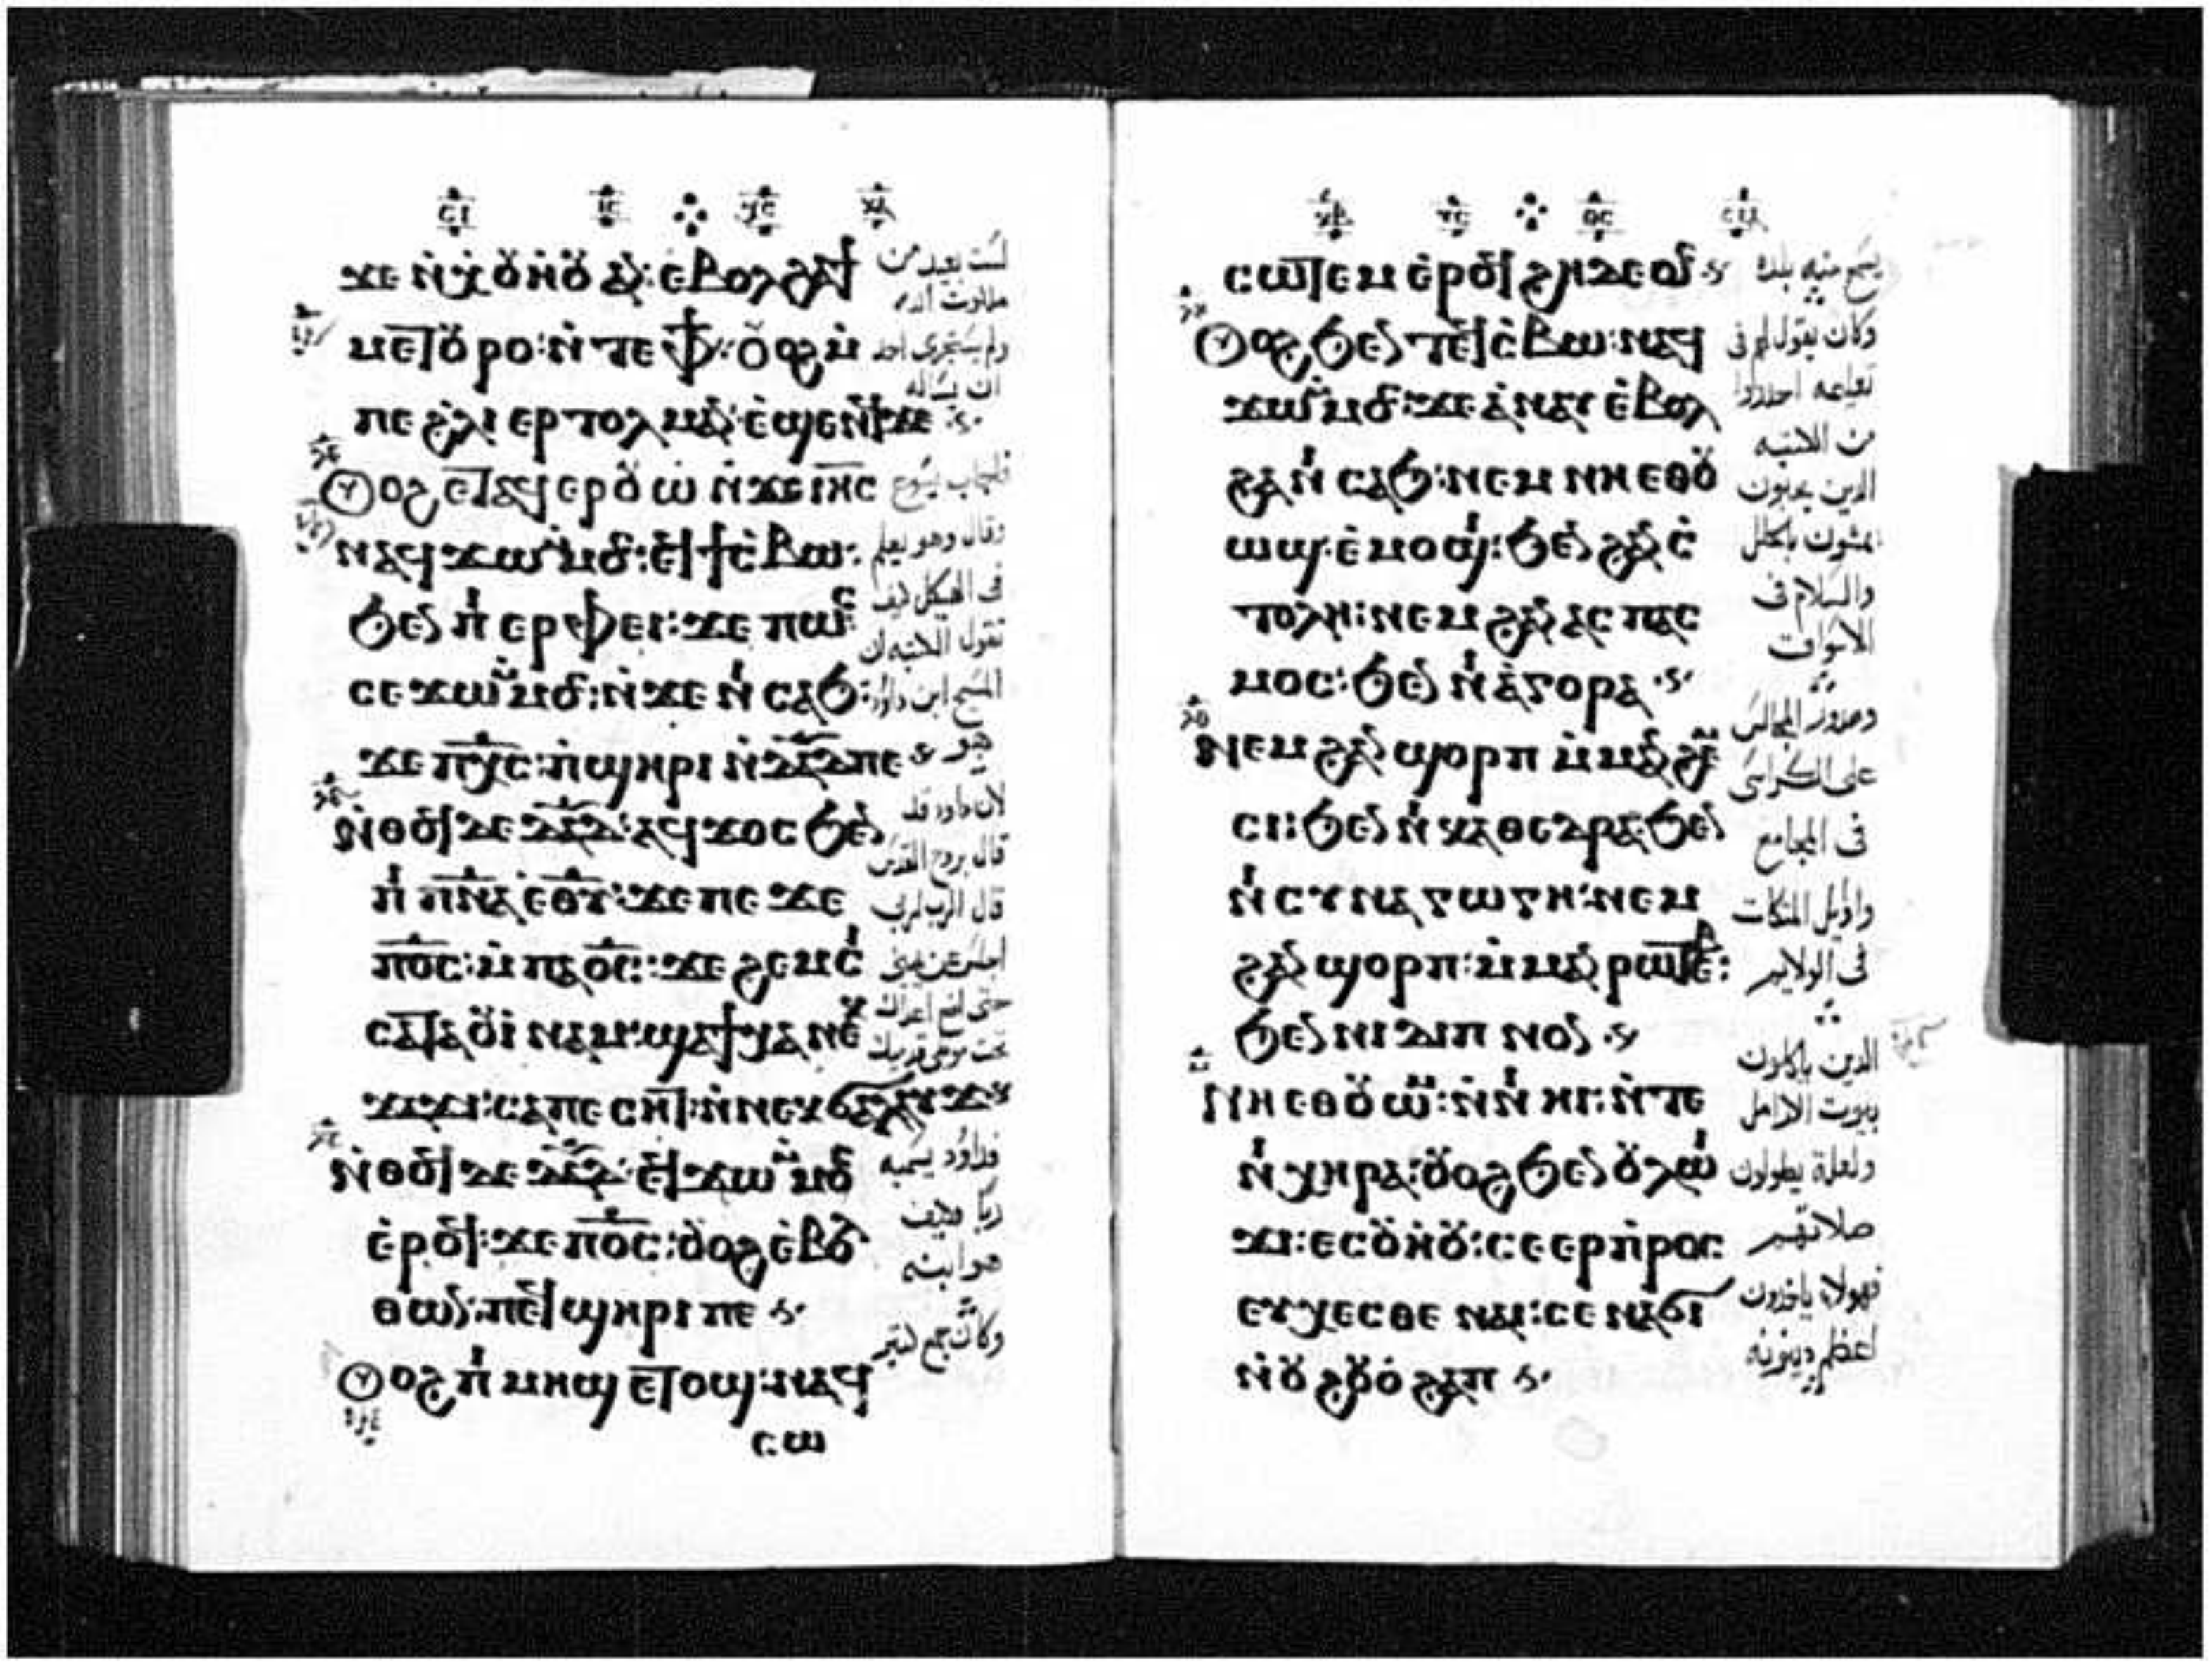 ϫⲉ ⲛ̀ⲭ̀ⲟⲩⲏⲟⲩ ⲁⲛ: ⲉⲃⲟⲗ ϩⲁϯ
ⲙⲉⲧⲟⲩⲣⲟ: ⲛ̀ⲧⲉ ⲫϯ: ⲟⲩⲟϩ ⲙ̀
ⲡⲉ ϩ̀ⲗⲓ ⲉⲣⲧⲟⲗⲙⲁⲛ: ⲉ̀ϣⲉⲛϥ ϫⲉ
ⲟⲩⲟϩ ⲉⲧⲁϥⲉⲣⲟⲩⲱ̀ ⲛ̀ϫⲉ ⲓⲏⲥ
ⲛⲁϥϫⲱ ⲙ̀ⲙⲟⲥ: ⲉϥϯⲥ̀ⲃⲱ:
ϧⲉⲛ ⲡⲓ ⲉⲣⲫⲉⲓ: ϫⲉ ⲡⲱⲥ
ⲥⲉϫⲱ ⲙ̀ⲙⲟⲥ: ⲛ̀ϫⲉ ⲛⲓ ⲥⲁϧ:
ϫⲉ ⲡⲭⲥ: ⲡ̀ϣⲏⲣⲓ ⲛ̀ⲇⲁⲇ ⲡⲉ
ⲛ̀ⲑⲟϥ ⲇⲉ ⲇⲁⲇ: ⲁϥϫⲟⲥ ϧⲉⲛ
ⲡⲓ ⲡⲛⲁ ⲉⲑⲩ: ϫⲉ ⲡⲉϫⲉ
ⲡⲟⲥ: ⲙ̀ⲡⲁⲟⲥ: ϫⲉ ϩⲉⲙⲥⲓ
ⲥⲁⲧⲁⲟⲩⲓ̀ⲛⲁⲙ: ϣⲁϯⲭⲁ ⲛⲉⲕ
ϫⲁϫⲓ: ⲥⲁⲡⲉⲥⲏⲧ: ⲛ̀ⲛⲉⲕϭⲁⲗⲁⲩϫ
ⲛ̀ⲑⲟϥ ⲇⲉ ⲇⲁⲇ: ⲉϥϫⲱ ⲙ̀ⲙⲟⲥ
ⲉ̀ⲣⲟϥ: ϫⲉ ⲡⲟⲥ: ⲟⲩⲟϩ ⲉ̀ⲃⲟⲗ
ⲑⲱⲛ: ⲡⲉϥϣⲏⲣⲓ ⲡⲉ
ⲟⲩⲟϩ ⲡⲓ ⲙⲏϣ ⲉⲧⲟϣ: ⲛⲁϥ
ⲥⲱ
لست بعيد من
ملكوت الله
ولم يستجرى احد
ان يساله
فاجاب يسوع
وقال وهو يعلم
فى الهيكل كيف
تقول الكتبه ان
المسيح ابن داود
هو
لان داود قد
قال بروح القدس
قال الرب لربى
اجلس عن يمينى
حتى اضع اعداك
تحت موطى قدميك
فداوود يسميه
ربا فكيف
هو ابنه
وكان جمع كثير
ⲥⲱⲧⲉⲙ ⲉ̀ⲣⲟϥ ϩⲏⲇⲉⲟⲥ
ⲟⲩⲟϩ ϧⲉⲛ ⲧⲉϥⲥ̀ⲃⲱ: ⲛⲁϥ
ϫⲱ ⲙ̀ⲙⲟⲥ: ϫⲉ ⲁ̀ⲛⲁⲩ ⲉ̀ⲃⲟⲗ
ϩⲁ ⲛⲓ ⲥⲁϧ: ⲛⲉⲙ ⲛⲏ ⲉⲑⲟⲩ
ⲱϣ: ⲉ̀ⲙⲟϣⲓ: ϧⲉⲛ ϩⲁⲛ ⲥ̀
ⲧⲟⲗⲏ: ⲛⲉⲙ ϩⲁⲛ ⲁⲥⲡⲁⲥ
ⲙⲟⲥ: ϧⲉⲛ ⲛⲓ ⲁ̀ⲅⲟⲣⲁ
ⲛⲉⲙ ϩⲁⲛ ϣⲟⲣⲡ ⲙ̀ⲙⲁⲛϩⲉⲙ
ⲥⲓ: ϧⲉⲛ ⲛⲓ ⲕⲁⲑⲉⲇⲣⲁ: ϧⲉⲛ
ⲛⲓ ⲥⲩⲛⲁⲅⲱⲅⲏ: ⲛⲉⲙ
ϩⲁⲛ ϣⲟⲣⲡ: ⲙ̀ⲙⲁⲛ ⲣⲱⲧⲉⲃ:
ϧⲉⲛ ⲛⲓ ⲇⲓⲡⲛⲟⲛ
ⲛⲏ ⲉⲑⲟⲩⲱⲙ: ⲛ̀ⲛⲓ ⲏⲓ: ⲛ̀ⲧⲉ
ⲛⲓ ⲭⲏⲣⲁ: ⲟⲩⲟϩ ϧⲉⲛ ⲟⲩⲗⲱⲓ
ϫⲓ: ⲉⲥⲟⲩⲏⲟⲩ: ⲥⲉⲉⲣⲡ̀ⲣⲟⲥ
ⲉⲩⲭⲉⲥⲑⲉ ⲛⲁⲓ: ⲥⲉ ⲛⲁϭⲓ
ⲛ̀ⲟⲩ ϩⲟⲩⲟ̀ ϩⲁⲡ
يسمع منه بلذه
وكان يقول لهم فى
تعليمه احذروا
من الكتبه
الذين يحبون
يمشون بالحلل
والسلام فى
الاسواق
وصدور المجالس
على الكراسى
فى المجامع
واوايل المتكات
فى الولايم
الذين ياكلون
بيوت الارامل
ولعلة يطولون
صلاتهم
فهولاء ياخذون
اعظم دينونه